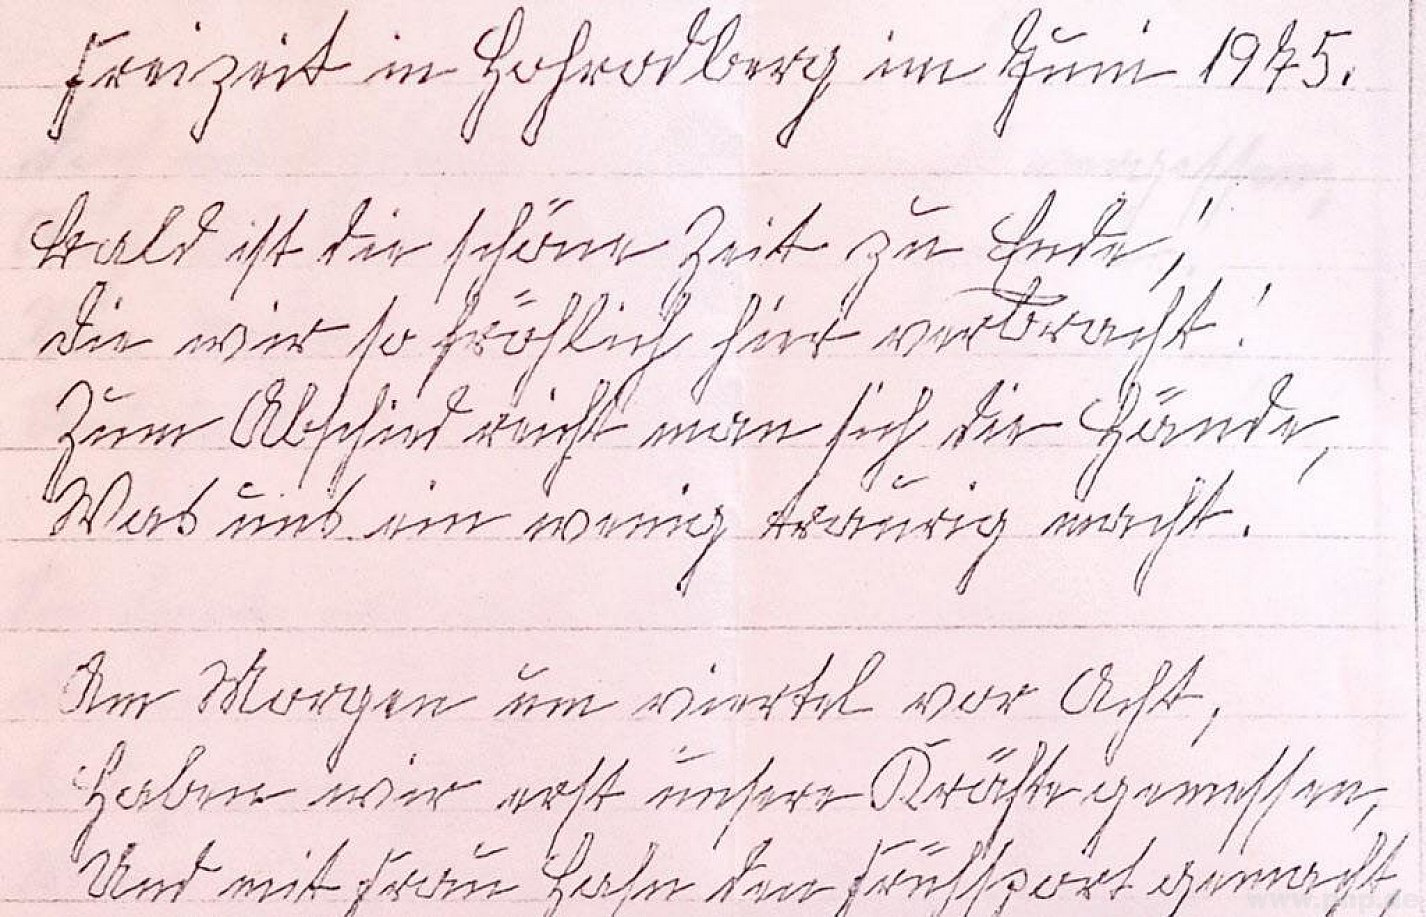 Freizeit in Hohrodberg im Juni 1975.
Bald ist die schöne Zeit zu Ende,!
die wir so fröhlich hier verbracht!
Zum Abschied reicht man sich die Hände,
Was uns ein wenig traurig macht.
Am Morgen um viertel vor Acht,
Haben wir erst unsere Kräfte gemessen,
Und mit Frau Hahn den Frühsport gemacht